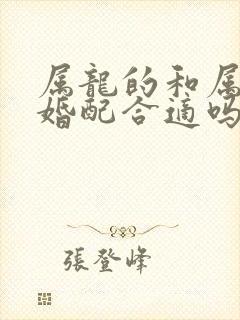 属龍的和属
婚配合適吗
張登峰